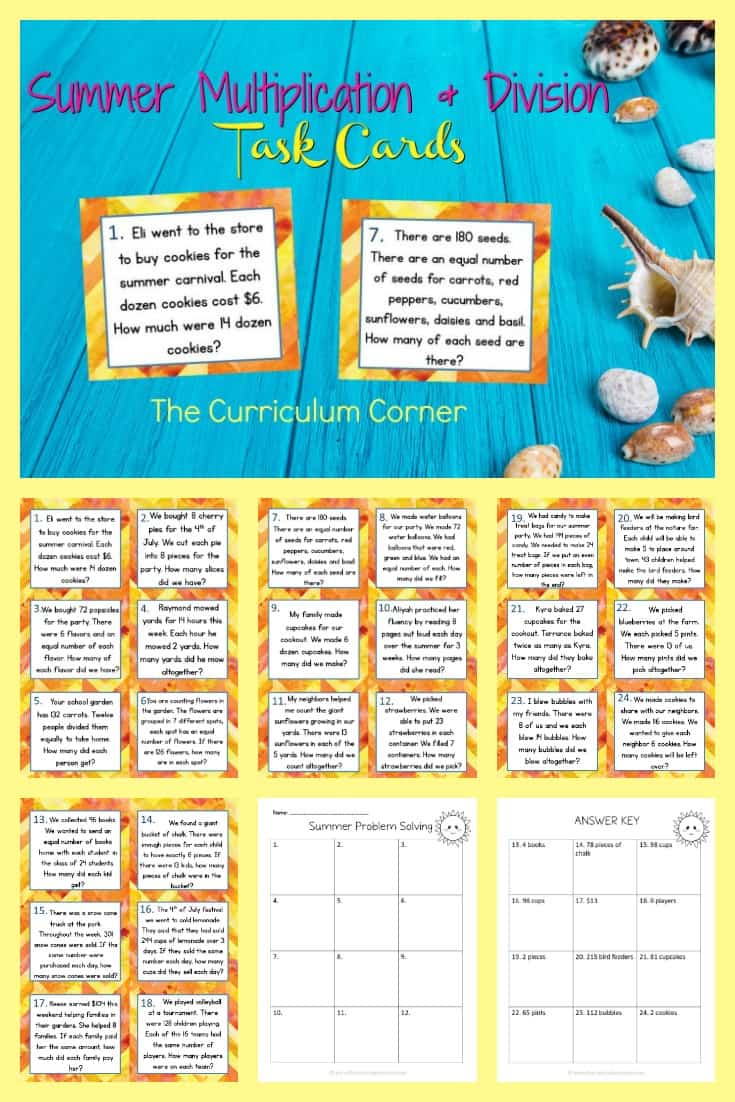 Summer Multiplication & Division
Task Cards
1. Eli went to the store
to buy cookies for the
summer carnival. Each
dozen cookies cost $6.
How much were 14 dozen
cookies?
7. There are 180 seeds.
There are an equal number
of seeds for carrots, red
peppers, cucumbers,
sunflowers, daisies and basil.
How many of each seed are
there?
The Curriculum Corner
1. Eli went to the store
to buy cookies for the
summer carnival. Each
dozen cookies cost $6.
How much were 14 dozen
cookies?
2. We bought 8 cherry
pies for the 4th of
July. We cut each pie
into 8 pieces for the
party. How many slices
did we have?
3. We bought 72 popsicles
for the party. There
were 6 flavors and an
equal number of each
flavor. How many of
each flavor did we have?
4. Raymond mowed
yards for 14 hours this
week. Each hour he
mowed 2 yards. How
many yards did he mow
altogether?
5. Your school garden
has 132 carrots. Twelve
people divided them
equally to take home.
How many did each
person get?
6. You are counting flowers in
the garden. The flowers are
grouped in 7 different spots,
each spot has an equal
number of flowers. If there
are 126 flowers, how many
are in each spot?
7. There are 180 seeds.
There are an equal number
of seeds for carrots, red
peppers, cucumbers,
sunflowers, daisies and basil.
How many of each seed are
there?
8. We made water balloons
for our party. We made 72
water balloons. We had
balloons that were red,
green and blue. We had an
equal number of each. How
many did we fill?
9. My family made
cupcakes for our
cookout. We made 6
dozen cupcakes. How
many did we make?
10. Aliyah practiced her
fluency by reading 8
pages out loud each day
over the summer for 3
weeks. How many pages
did she read?
11. My neighbors helped
me count the giant
sunflowers growing in our
yards. There were 13
sunflowers in each of the
5 yards. How many did we
count altogether?
12. We picked
strawberries. We were
able to put 23
strawberries in each
container. We filled 7
containers. How many
strawberries did we pick?
19. We had candy to make
treat bags for our summer
party. We had 194 pieces of
candy. We needed to make 24
treat bags. If we put an even
number of pieces in each bag,
how many pieces were left in
the end?
20. We will be making bird
feeders at the nature fair.
Each child will be able to
make 5 to place around
town. 43 children helped
make the bird feeders. How
many did they make?
21. Kyra baked 27
cupcakes for the
cookout. Terrance baked
twice as many as Kyra.
How many did they bake
altogether?
22. We picked
blueberries at the farm.
We each picked 5 pints.
There were 13 of us.
How many pints did we
pick altogether?
23. I blew bubbles with
my friends. There were
8 of us and we each
blew 14 bubbles. How
many bubbles did we
blow altogether?
24. We made cookies to
share with our neighbors.
We made 16 cookies. We
wanted to give each
neighbor 6 cookies. How
many cookies will be left
over?
13. We collected 96 books.
We wanted to send an
equal number of books
home with each student in
the class of 24 students.
How many did each kid
get?
14. We found a giant
bucket of chalk. There were
enough pieces for each child
to have exactly 6 pieces. If
there were 13 kids, how many
pieces of chalk were in the
bucket?
15. There was a snow cone
truck at the park.
Throughout the week, 301
snow cones were sold. If the
same number were
purchased each day, how
many snow cones were sold?
16. The 4th of July festival
we went to sold lemonade.
They said that they had sold
294 cups of lemonade over 3
days. If they sold the same
number each day, how many
cups did they sell each day?
17. Reese earned $104 this
weekend helping families in
their gardens. She helped 8
families. If each family paid
her the same amount, how
much did each family pay
her?
18. We played volleyball
at a tournament. There
were 128 children playing.
Each of the 16 teams had
the same number of
players. How many players
were on each team?
Name:
Summer Problem Solving
1. 2. 3.
4. 5. 6.
7. 8. 9.
10. 11. 12.
ANSWER KEY
13. 4 books 14. 78 pieces of chalk 15. 98 cups
16. 98 cups 17. $13 18. 8 players
19. 2 pieces 20. 215 bird feeders 21. 81 cupcakes
22. 65 pints 23. 112 bubbles 24. 2 cookies